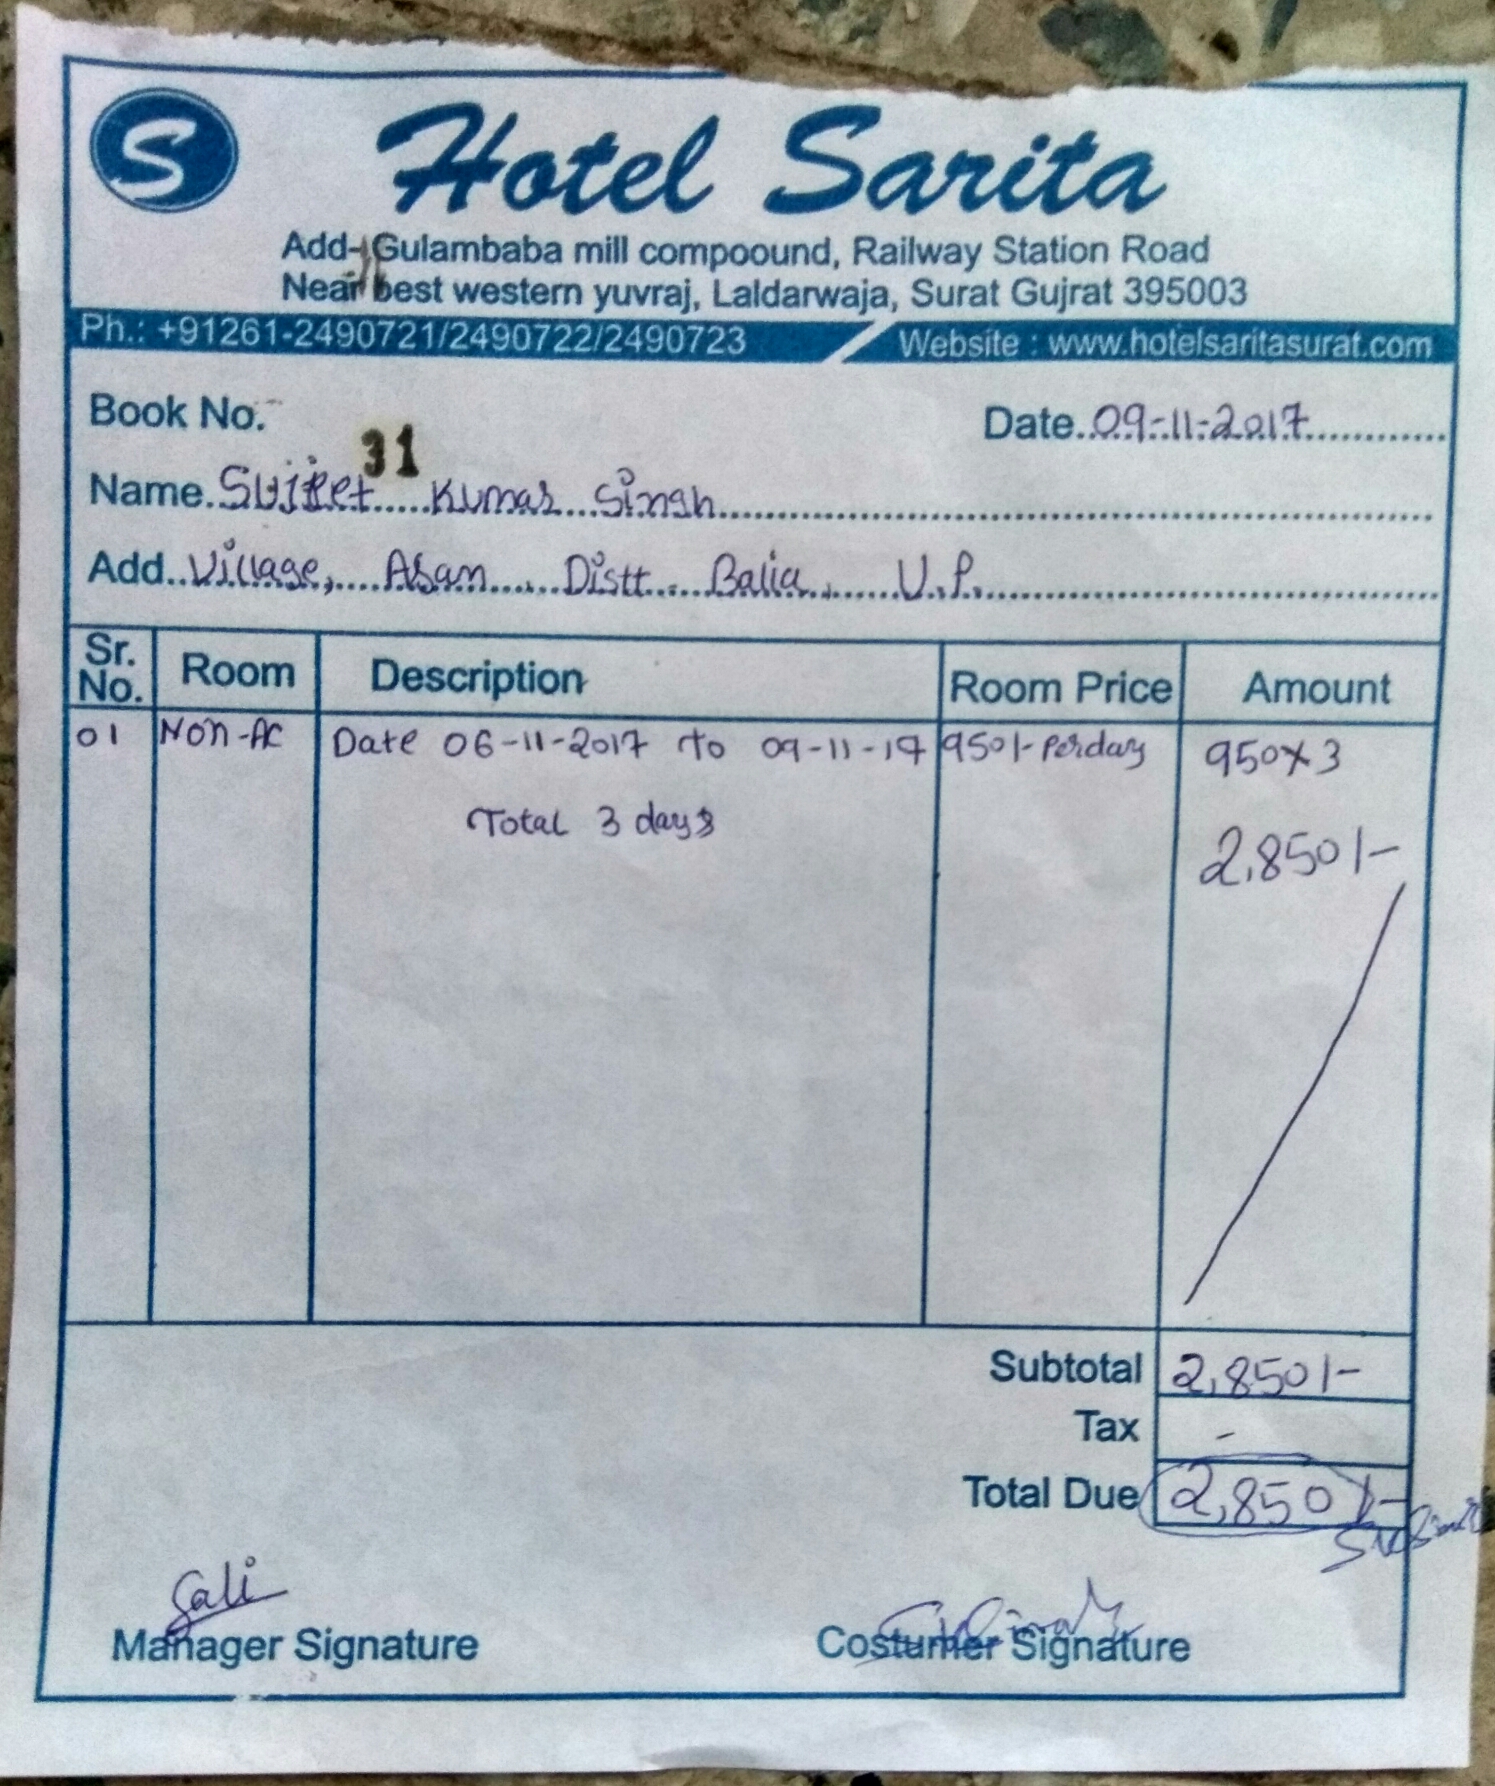 S Hotel Sarita
Add- Gulambaba mill compoound, Railway Station Road
Near best western yuvraj, Laldarwaja, Surat Gujrat 395003
Ph.: +91261-2490721/2490722/2490723 Website : www.hotelsaritasurat.com
Book No. 31 Date. 09-11-2017
Name. Sujeet Kumar Singh
Add.. Village, Asan Distt Balia, U.P.
Sr. No. Room Description Room Price Amount
01 Non-AC Date 06-11-2017 To 09-11-17 950/- Perday 950x3
Total 3 days 2,850/-
Subtotal 2,850/-
Tax -
Total Due 2,850/-
Manager Signature Costumer Signature